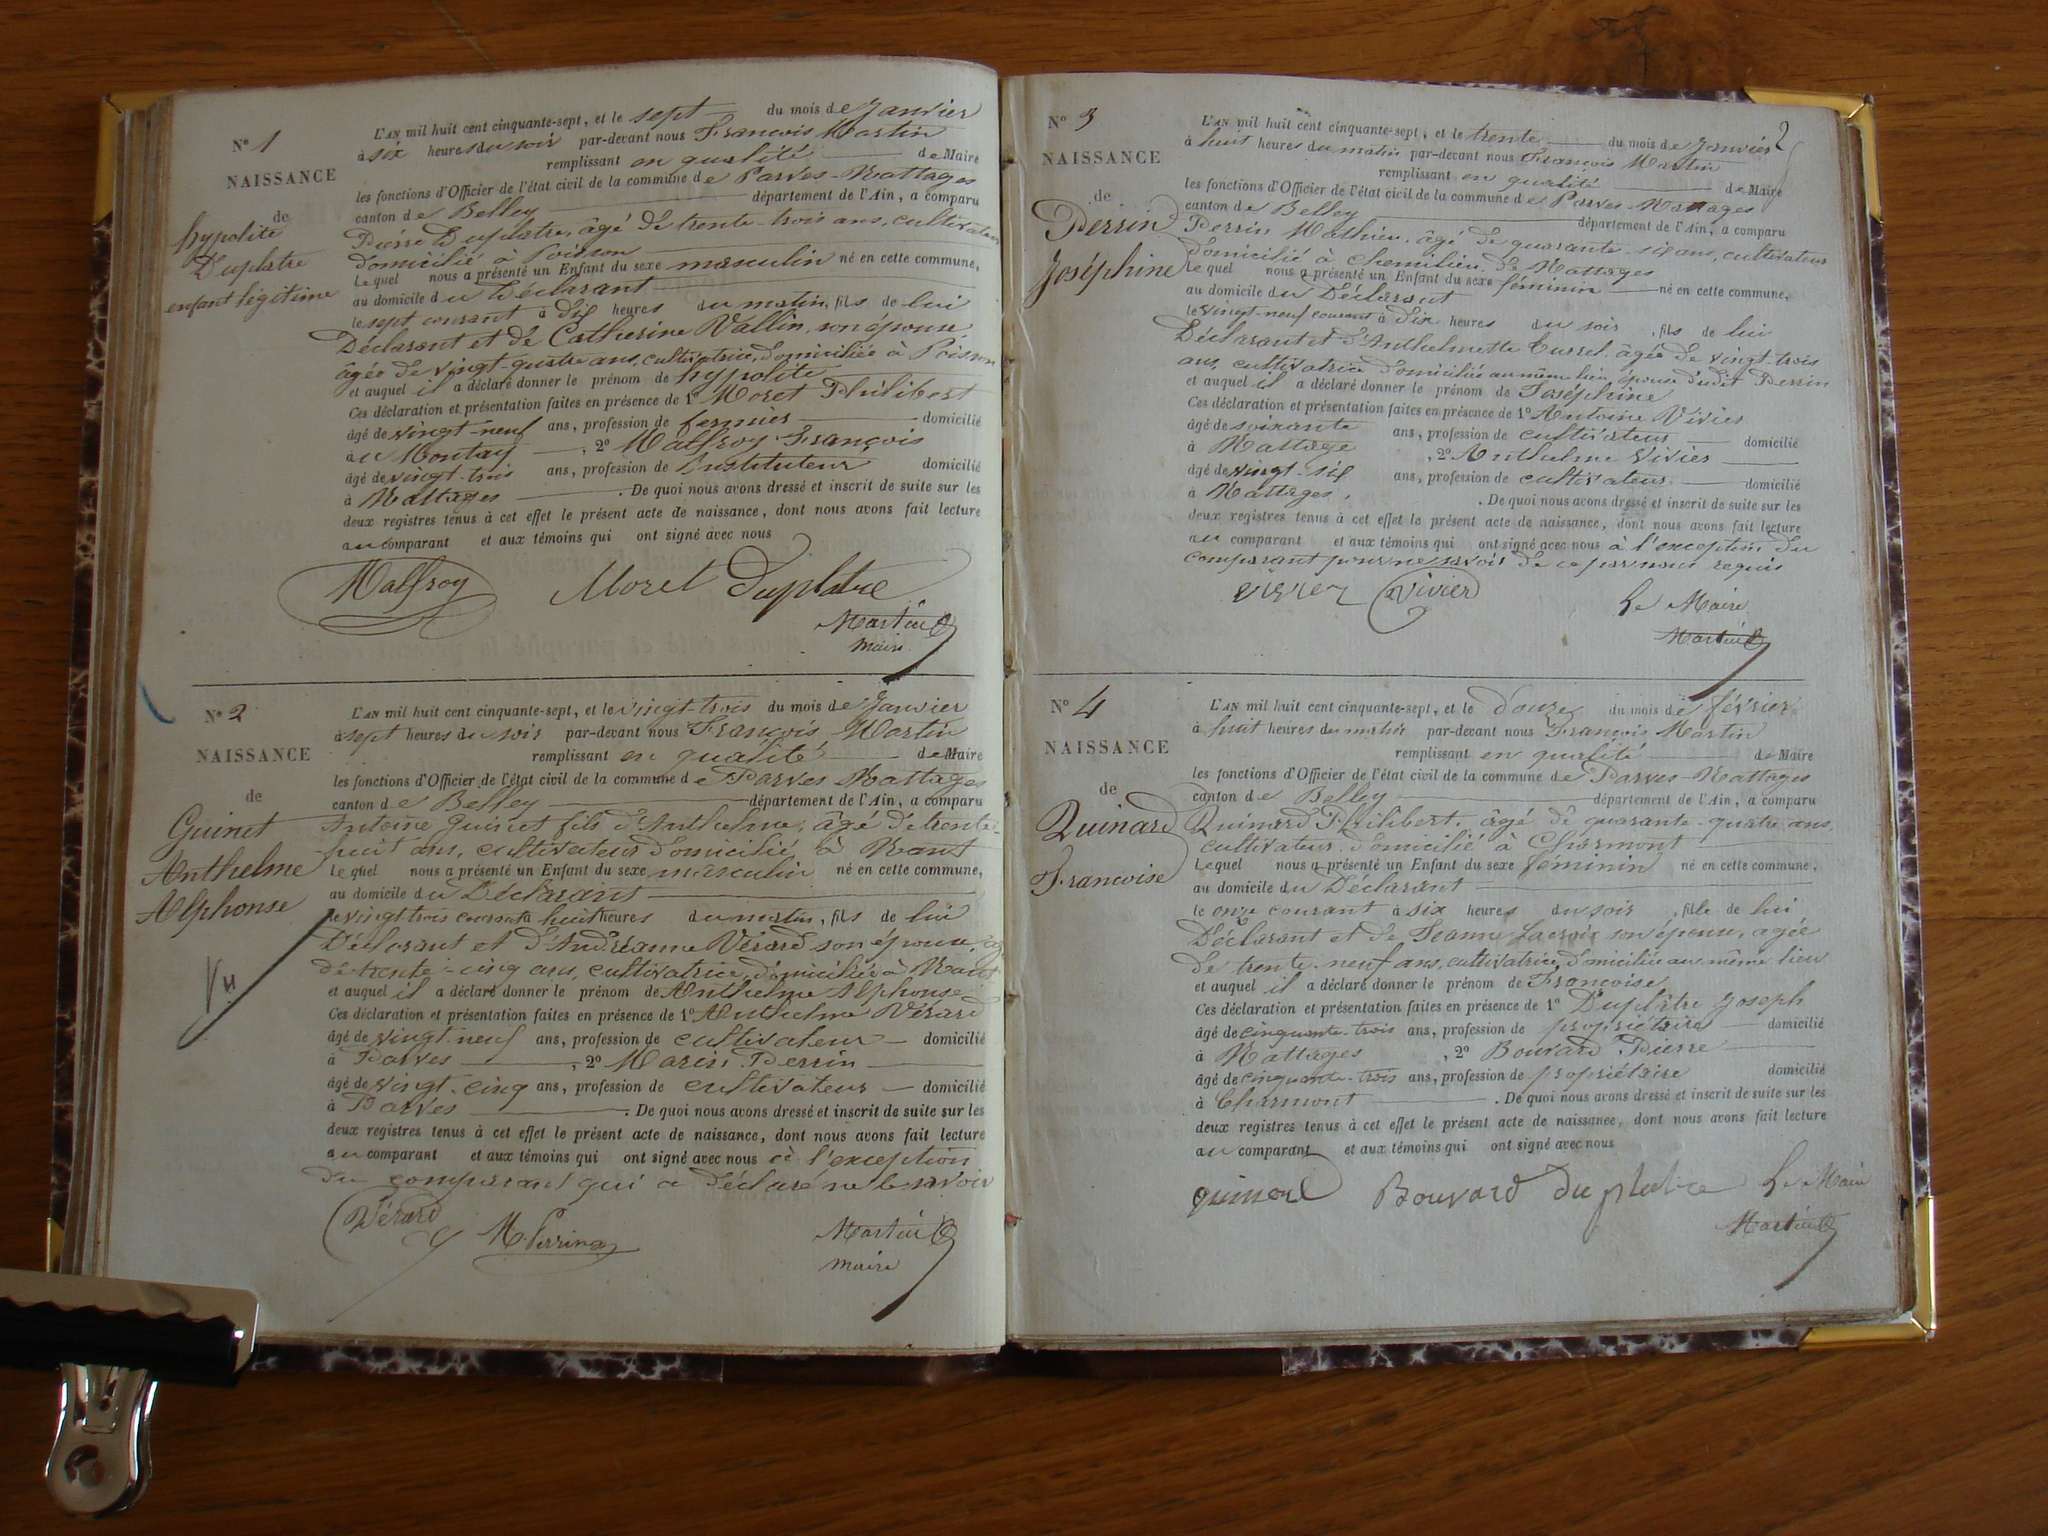 N° 1
NAISSANCE
de
hypolite
Duplatre
enfant légitime
L'AN mil huit cent cinquante-sept, et le sept du mois de Janvier
à six heures du soir par-devant nous François Martin
remplissant en qualité de Maire
les fonctions d'Officier de l'état civil de la commune de Parves-Nattages
canton de Belley département de l'Ain, a comparu
Pierre Duplatre, âgé de trente-trois ans, cultivateur
domicilié à Poisson
Lequel nous a présenté un Enfant du sexe masculin né en cette commune,
au domicile du Déclarant
le sept courant à dix heures du matin, fils de lui
Déclarant et de Catherine Vallin, son épouse
âgée de vingt-quatre ans, cultivatrice, domiciliée à Poisson
et auquel il a déclaré donner le prénom de hypolite
Ces déclaration et présentation faites en présence de 1° Moret Philibert
âgé de vingt-neuf ans, profession de fermier domicilié
au Montay, 2° Malfroy François
âgé de vingt-trois ans, profession de Instituteur domicilié
à Nattages. De quoi nous avons dressé et inscrit de suite sur les
deux registres tenus à cet effet le présent acte de naissance, dont nous avons fait lecture
au comparant et aux témoins qui ont signé avec nous
Malfroy Moret Duplatre
Martin
maire
N° 2
NAISSANCE
de
Guinet
Anthelme
Alphonse
Vu
L'AN mil huit cent cinquante-sept, et le vingt-trois du mois de Janvier
à sept heures du soir par-devant nous François Martin
remplissant en qualité de Maire
les fonctions d'Officier de l'état civil de la commune de Parves-Nattages
canton de Belley département de l'Ain, a comparu
Antoine Guinet fils d'Anthelme, âgé de trente-
huit ans, cultivateur domicilié à Nant
Lequel nous a présenté un Enfant du sexe masculin né en cette commune,
au domicile du Déclarant
le vingt-trois courant à huit heures du matin, fils de lui
Déclarant et d'Andréanne Vérard son épouse, âgée
de trente-cinq ans, cultivatrice, domiciliée à Nant
et auquel il a déclaré donner le prénom de Anthelme Alphonse
Ces déclaration et présentation faites en présence de 1° Anthelme Vérard
âgé de vingt-neuf ans, profession de cultivateur domicilié
à Parves, 2° Marin Perrin
âgé de vingt-cinq ans, profession de cultivateur domicilié
à Parves. De quoi nous avons dressé et inscrit de suite sur les
deux registres tenus à cet effet le présent acte de naissance, dont nous avons fait lecture
au comparant et aux témoins qui ont signé avec nous à l'exception
du comparant qui a déclaré ne le savoir
Vérard M. Perrin Martin
maire
2
N° 3
NAISSANCE
de
Perrin
Joséphine
L'AN mil huit cent cinquante-sept, et le trente du mois de Janvier
à huit heures du matin par-devant nous François Martin
remplissant en qualité de Maire
les fonctions d'Officier de l'état civil de la commune de Parves-Nattages
canton de Belley département de l'Ain, a comparu
Perrin Mathieu, âgé de quarante-six ans, cultivateur
domicilié à Chemilieu de Nattages
Lequel nous a présenté un Enfant du sexe féminin né en cette commune,
au domicile du Déclarant
le vingt-neuf courant à dix heures du soir, fils de lui
Déclarant et d'Anthelmette Curret, âgée de vingt-trois
ans, cultivatrice domiciliée au même lieu, épouse dudit Perrin
et auquel il a déclaré donner le prénom de Joséphine
Ces déclaration et présentation faites en présence de 1° Antoine Vivier
âgé de soixante ans, profession de cultivateur domicilié
à Nattage, 2° Anthelme Vivier
âgé de vingt-six ans, profession de cultivateur domicilié
à Nattages. De quoi nous avons dressé et inscrit de suite sur les
deux registres tenus à cet effet le présent acte de naissance, dont nous avons fait lecture
au comparant et aux témoins qui ont signé avec nous à l'exception du
comparant pour ne savoir de ce par nous requis
vivier Vivier Le Maire
Martin
N° 4
NAISSANCE
de
Quinard
Francoise
L'AN mil huit cent cinquante-sept, et le douze du mois de février
à huit heures du matin par-devant nous François Martin
remplissant en qualité de Maire
les fonctions d'Officier de l'état civil de la commune de Parves-Nattages
canton de Belley département de l'Ain, a comparu
Quinard Philibert, âgé de quarante-quatre ans,
cultivateur, domicilié à Charmont
Lequel nous a présenté un Enfant du sexe féminin né en cette commune,
au domicile du Déclarant
le onze courant à six heures du soir, fille de lui
Déclarant et de Jeanne Lacroix son épouse, agée
de trente-neuf ans, cultivatrice, domiciliée au même lieu
et auquel il a déclaré donner le prénom de Francoise
Ces déclaration et présentation faites en présence de 1° Duplâtre Joseph
âgé de cinquante-trois ans, profession de propriétaire domicilié
à Nattages, 2° Bouvard Pierre
âgé de cinquante-trois ans, profession de propriétaire domicilié
à Charmont. De quoi nous avons dressé et inscrit de suite sur les
deux registres tenus à cet effet le présent acte de naissance, dont nous avons fait lecture
au comparant et aux témoins qui ont signé avec nous
quinard Bouvard Duplatre Le Maire
Martin